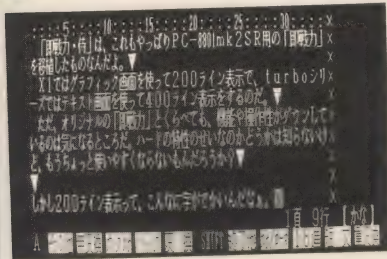 ・・・・5・・・・10・・・・15・・・・20・・・・25・・・・30・・×
「即戦力・侍」は、これもやっぱりPC-8801mk2SR用の「即戦力」
を移植したものなんだよ。
X1ではグラフィック画面を使って200ライン表示で、turboシリ×
ーズではテキスト画面を使って400ライン表示をするのだ。
ただ、オリジナルの「即戦力」とくらべても、機能や操作性がダウンして
いるのは気になるところだ。ハードの特性のせいなのかどうかは知らないけ
ど、もうちょっと使いやすくならないもんだろうか?
しかし200ライン表示って、こんなに字がでかいんだよ。
1頁 9行 [かな]
A SHIFT